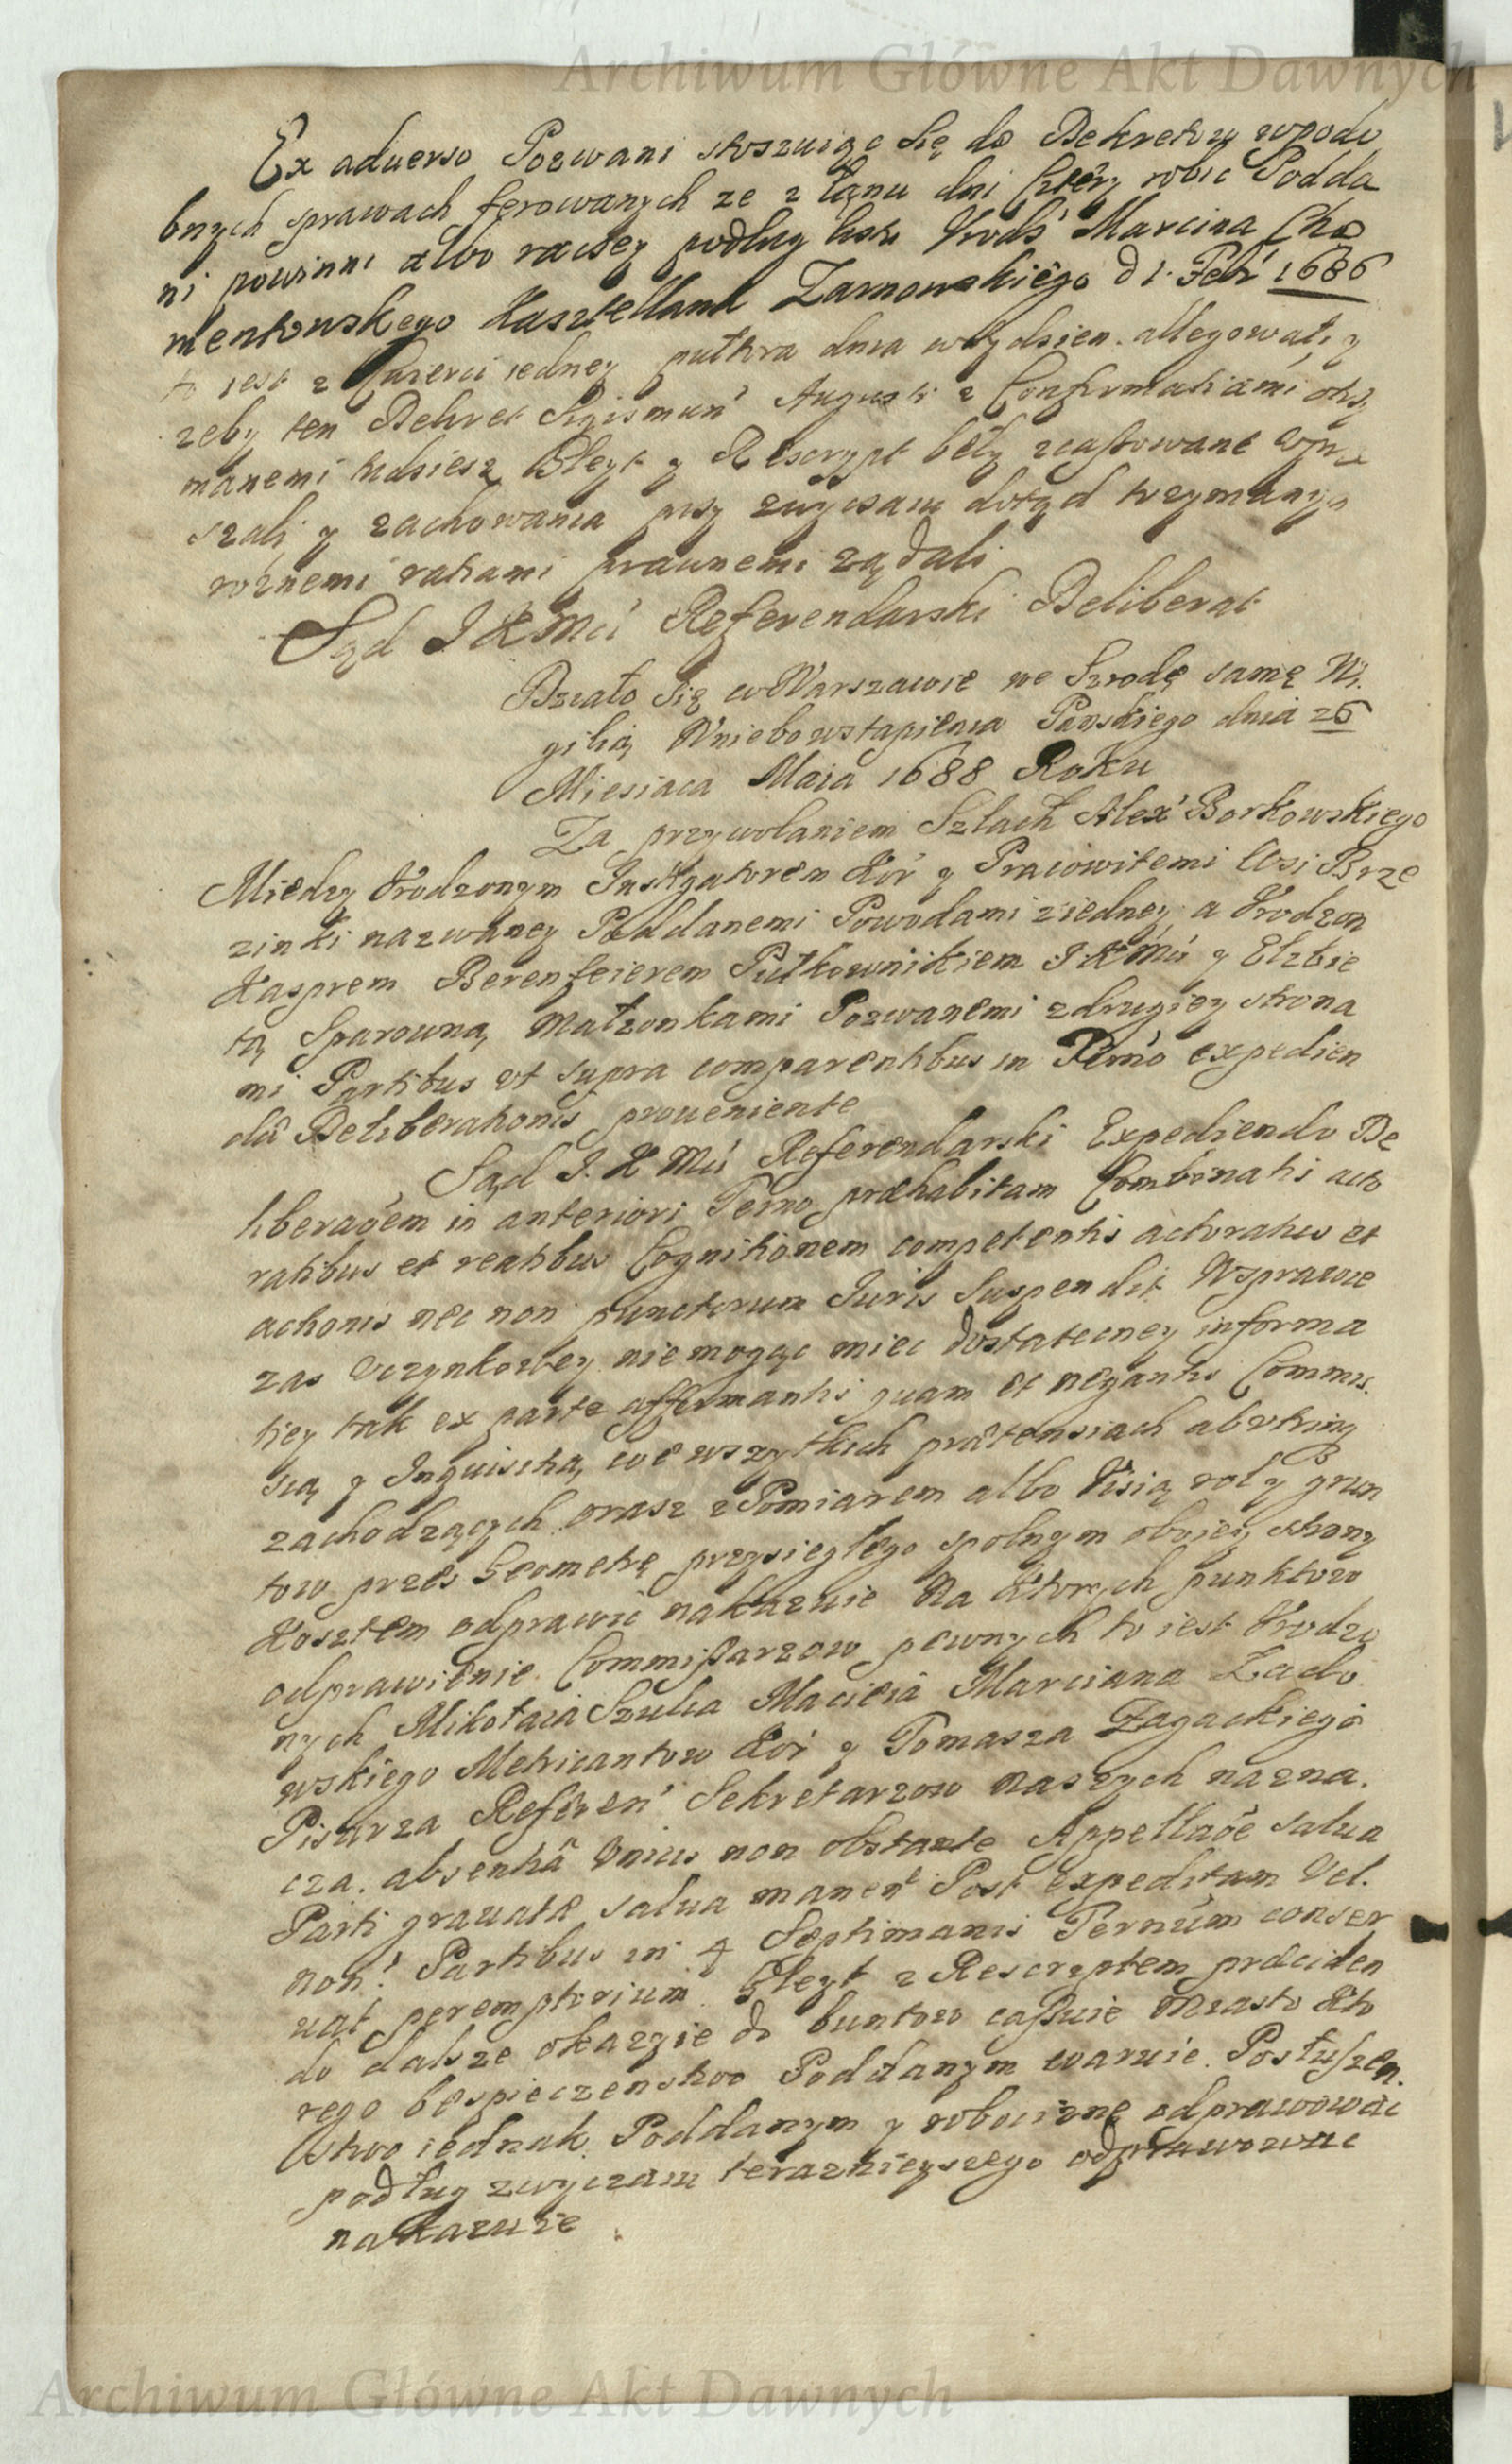 Archiwum Główne Akt Dawnych
Ex aduerso Pozwani stoszuiąc się do Dekretow wpodo
bnych sprawach ferowanych ze z łanu dni cztery robic Podda
ni powinni albo raczey podług listu Vrodź Marcina Cho
mentowskego Kasztellana Zarnowskiego d 1. Febr 1686
to iest z cwierci iedney pułtora dnia w tydzien. allegowali, y
zeby ten Dekret Sigismun Augusti z Confirmatiami otrzy
manemi tudziesz Gleyt y Rescrypt beły zcassowane wpra
szali y zachowania przy zwyczaiu dotąd trzymanym
roznemi ratiami prawnemi żądali
Sąd JKMci Referendarski Deliberat
Działo się w Warszawie we Szrodę samę Wi
gilią Wniebowstąpienia Panskiego dnia 26
Miesiaca Maia 1688 Roku
Za przywołaniem Szlach Alex Borkowskiego
Miedzy Vrodzonym Instigatorem Kor y Pracowitemi Wsi Brze
zinki nazwaney Poddanemi Powodami ziedney a Vrodzon
Kasprem Berenfeierem Pułkownikiem JKMci y Elzbie
tą Sparowną Małzonkami Pozwanemi zdrugiey strona
mi Partibus vt supra comparentibus in Termo expedien
dae Deliberationis proueniente
Sąd J.KMci Referendarski Expediendo De
liberaoem in anteriori Termo praehabitam Combinatis acto
ratibus et reatibus Cognitionem competentis actoratus et
actionis nec non punctorum Iuris Suspendit Wsprawie
zas Vczynkowey niemogąc miec dostateczney informa
tiey tak ex parte affirmantis quam et negantis Commis
sią y Inquisitią we wszytkich praetensiach abvtrinq
zachodzących orasz z Pomiarem albo Visią rol y grun
tow przes Geometrę przysiegłego spolnym obuiey strony
Kosztem odprawic nakazuie Na ktorych punktow
odprawienie Commissarzow pewnych to iest Vrodzo
nych Mikołaia Szulca Macieia Marciana Lado
wskiego Metricantow Kor y Tomasza Zagackiego
Pisarza Referen Sekretarzow Naszych nazna
cza. absentia Vnius non obstante Appellaoe salua
Parti grauatae salua manen Post Expeditam Vel
non Partibus in 4 Septimanis Termum conser
uat peremptorium. Gleyt z Rescryptem praeciden
do dalsze okazyie do buntow cassuie Miasto kto
rego bespieczenstwo Poddanym waruie. Posłuszen
stwo iednak Poddanym y robociznę odprawowac
podług zwyczaiu terazniejszego odprawowac
nakazuie
Archiwum Główne Akt Dawnych